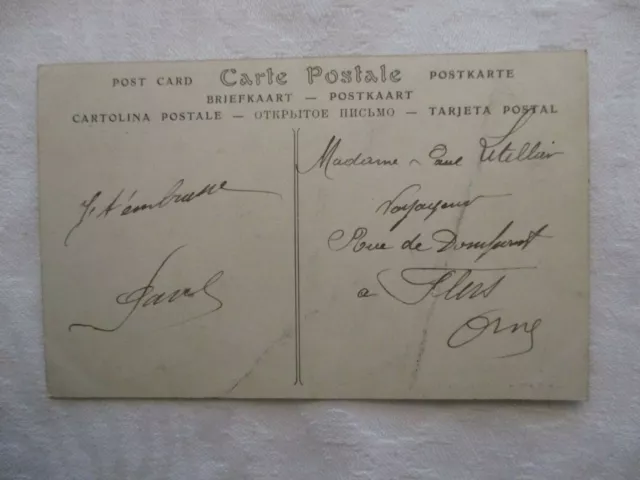 POST CARD Carte Postale POSTKARTE
BRIEFKAART — POSTKAART
CARTOLINA POSTALE — ОТКРЫТОЕ ПИСЬМО — TARJETA POSTAL
Je t'embrasse
Paul
Madame Paul Letellier
Voyageur
Rue de Domfront
a Flers
Orne